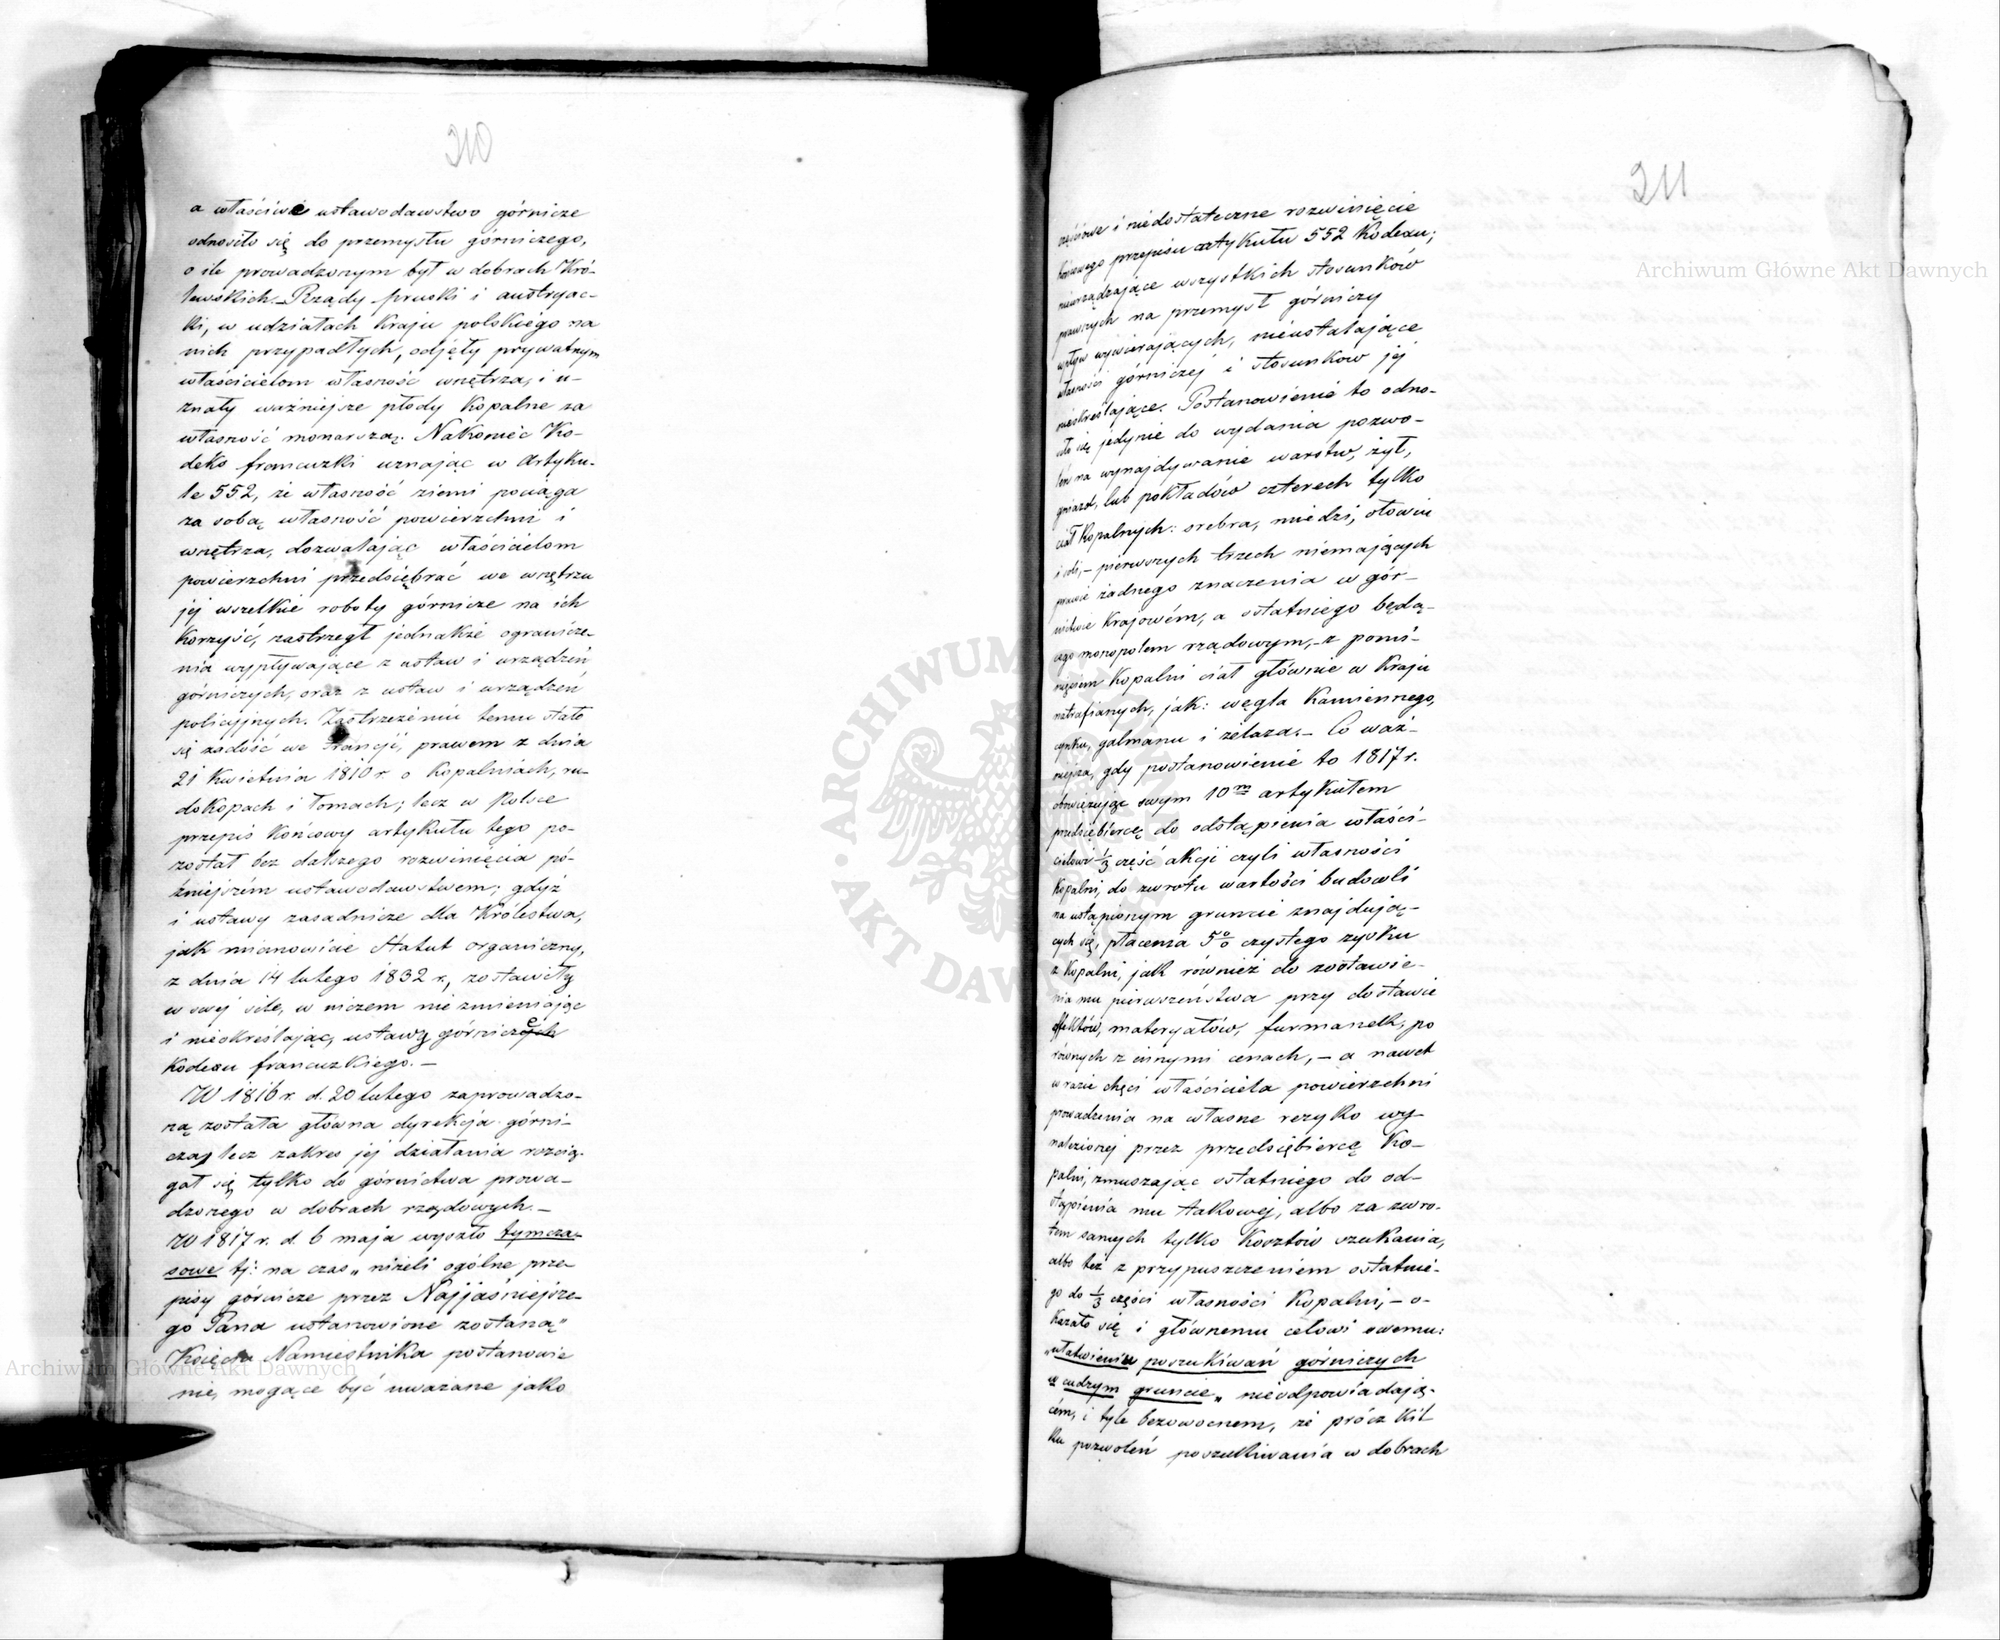 210
a właściwe ustawodawstwo górnicze
odnosiło się do przemysłu górniczego,
o ile prowadzonym był w dobrach Kró-
lewskich. – Rządy pruski i austryac-
ki, w udziałach Kraju polskiego na
nich przypadłych, odjęły prywatnym
właścicielom własność wnętrza, i u-
znały ważniejsze płody Kopalne za
własność monarszą. Nakoniec Ko-
deks francuzki uznając w Artyku-
le 552, że własność ziemi pociąga
za sobą własność powierzchni i
wnętrza, dozwalając właścicielom
powierzchni przedsiębrać we wnętrzu
jej wszelkie roboty górnicze na ich
Korzyść, zastrzegł jednakże ogranicze-
nia wypływające z ustaw i urządzeń
górniczych, oraz z ustaw i urządzeń
policyjnych. Zastrzeżeniu temu stało
się zadość we Francji, prawem z dnia
21 Kwietnia 1810 r. o Kopalniach, ru-
dokopach i łomach; lecz w Polsce
przepis Końcowy artykułu tego po-
został bez dalszego rozwinięcia pó-
źniejszém ustawodawstwem; gdyż
i ustawy zasadnicze dla Królestwa,
jak mianowicie Statut organiczny,
z dnia 14 lutego 1832 r., zostawiły
w swej sile, w niczem nie zmieniając
i nieokreślając, ustawy górnicze
Kodexu francuzkiego. –
W 1816 r. d. 20 lutego zaprowadzo-
ną została główna dyrekcja górni-
cza, lecz zakres jej działania rozcią-
gał się tylko do górnictwa prowa-
dzonego w dobrach rządowych. –
W 1817 r. d. 6 maja wyszło tymcza-
sowe tj: na czas „niżeli ogólne prze-
pisy górnicze przez Najjaśniejsze-
go Pana ustanowione zostaną"
Księcia Namiestnika postanowie
nie, mogące być uważane jako
211
częściowe i niedostateczne rozwinięcie
końcowego przepisu artykułu 552 Kodexu;
nieurządzające wszystkich stosunków
prawnych na przemysł górniczy
wpływ wywierających, nieustalające
własności górniczej i stosunków jej
nieokreślające. Postanowienie to odno-
siło się jedynie do wydania pozwo-
leń na wynajdywanie warstw, żył,
gniazd, lub pokładów czterech tylko
ciał Kopalnych: srebra, miedzi, ołowiu
i soli, – pierwszych trzech niemających
prawie żadnego znaczenia w gór-
nictwie Krajowém, a ostatniego będą-
cego monopolem rządowym, – z pomi-
nięciem Kopalni ciał głównie w Kraju
natrafianych, jak: węgla Kamiennego,
cynku, galmanu i żelaza. – Co waż-
niejsza, gdy postanowienie to 1817 r.
obowiązując swym 10m artykułem
przedsiębiercę do odstąpienia właści-
cielowi 1/3 część akcji czyli własności
Kopalni, do zwrotu wartości budowli
na ustąpionym gruncie znajdują-
cych się, płacenia 5% czystego zysku
z Kopalni, jak również do zostawie-
nia mu pierwszeństwa przy dostawie
effektów, materyałów, furmanek, po
równych z innymi cenach, – a nawet
w razie chęci właściciela powierzchni
prowadzenia na własne rezyko wy-
nalezionej przez przedsiębiercę Ko-
palni, zmuszając ostatniego do od-
stąpienia mu takowej, albo za zwro-
tem samych tylko Kosztów szukania,
albo też z przypuszczeniem ostatnie-
go do 1/3 części własności Kopalni, – o-
Kazało się i głównemu celowi swemu:
„ułatwieniu poszukiwań górniczych
w cudzym gruncie„ nieodpowiadają-
cém, i tyle bezowocnem, że prócz Kil
Ku pozwoleń poszukiwania w dobrach
Archiwum Główne Akt Dawnych
Archiwum Główne Akt Dawnych